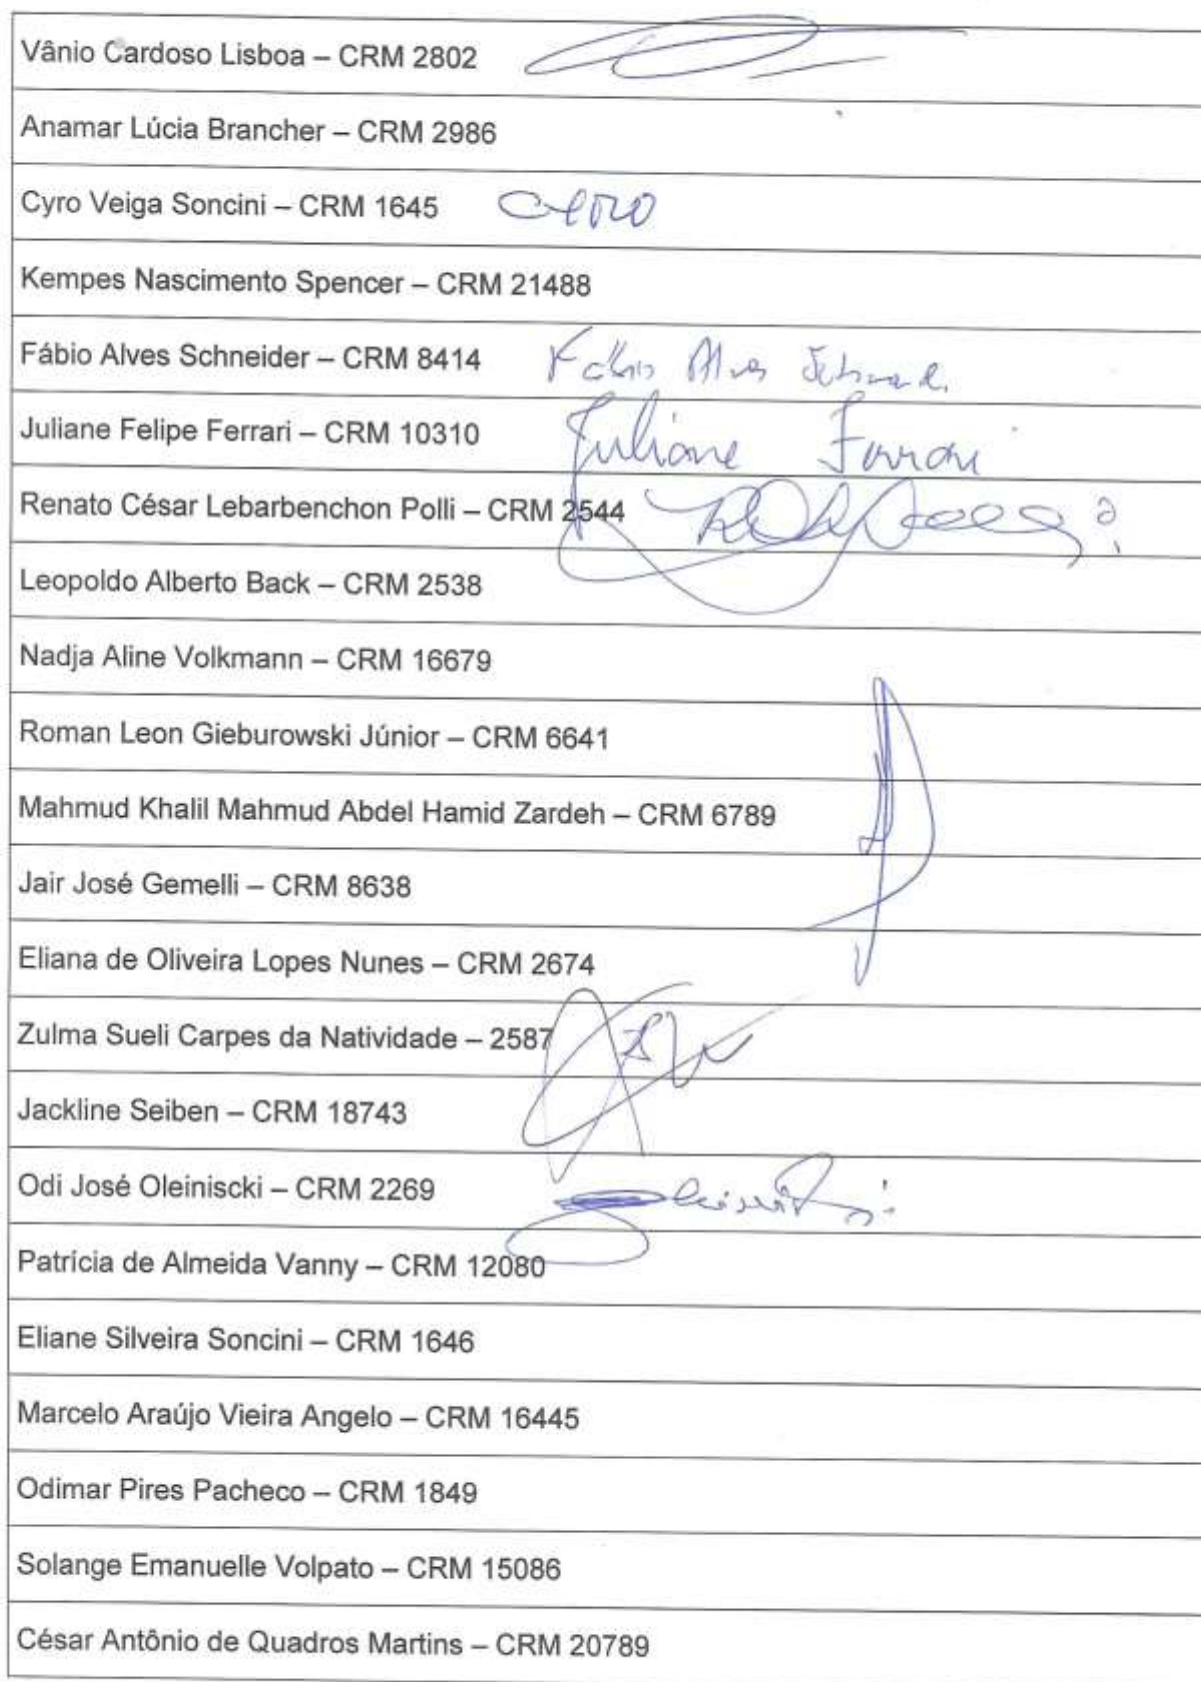 Vânio Cardoso Lisboa – CRM 2802
Anamar Lúcia Brancher – CRM 2986
Cyro Veiga Soncini – CRM 1645
Kempes Nascimento Spencer – CRM 21488
Fábio Alves Schneider – CRM 8414 Fábio Alves
Juliane Felipe Ferrari – CRM 10310 Juliane Ferrari
Renato César Lebarbenchon Polli – CRM 2544
Leopoldo Alberto Back – CRM 2538
Nadja Aline Volkmann – CRM 16679
Roman Leon Gieburowski Júnior – CRM 6641
Mahmud Khalil Mahmud Abdel Hamid Zardeh – CRM 6789
Jair José Gemelli – CRM 8638
Eliana de Oliveira Lopes Nunes – CRM 2674
Zulma Sueli Carpes da Natividade – 2587
Jackline Seiben – CRM 18743
Odi José Oleiniscki – CRM 2269
Patrícia de Almeida Vanny – CRM 12080
Eliane Silveira Soncini – CRM 1646
Marcelo Araújo Vieira Angelo – CRM 16445
Odimar Pires Pacheco – CRM 1849
Solange Emanuelle Volpato – CRM 15086
César Antônio de Quadros Martins – CRM 20789